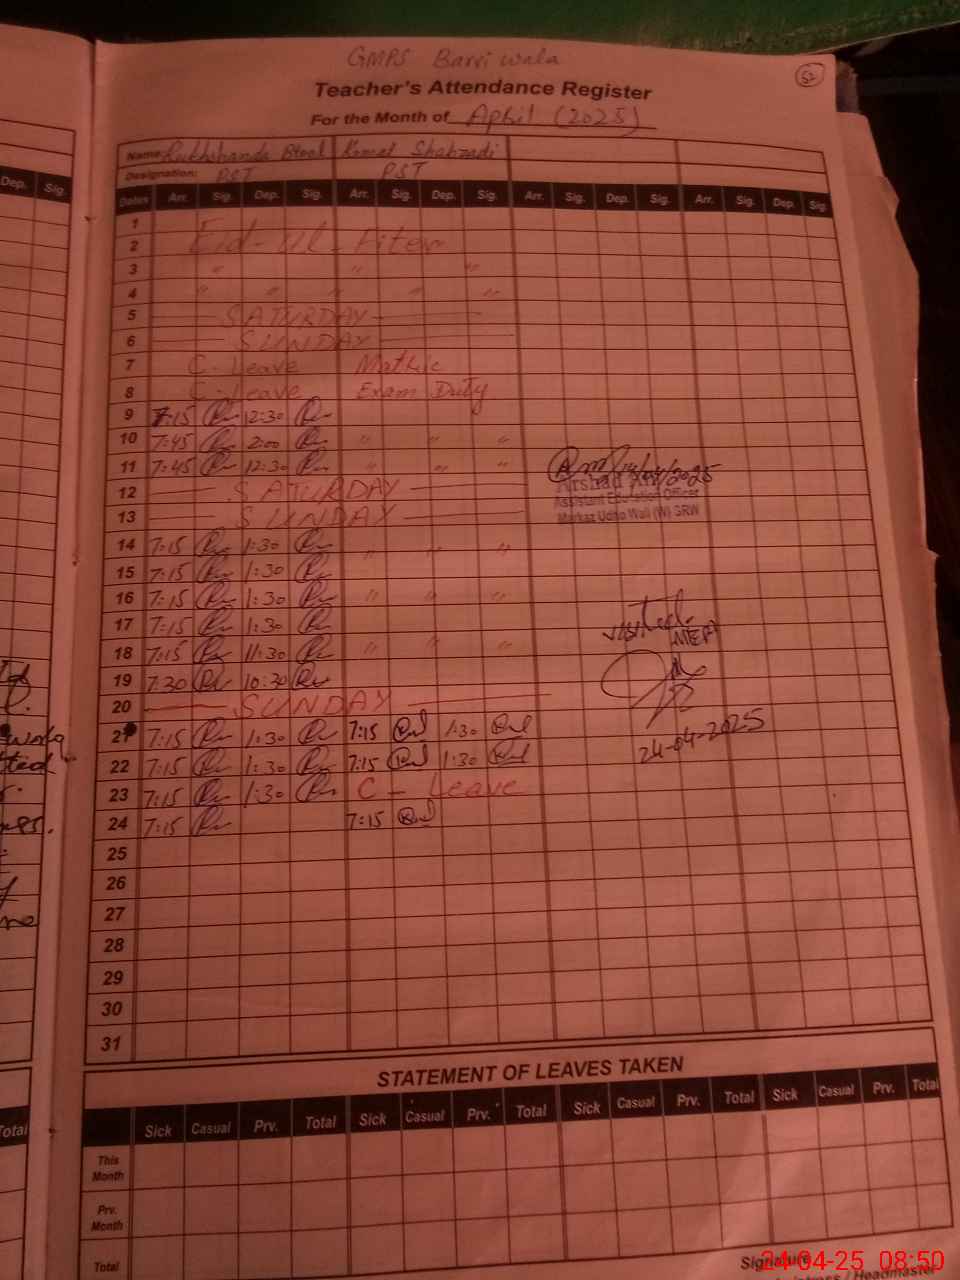 GMPS Barri wala
52
Teacher's Attendance Register
For the Month of April (2025)
Name: Rukhshanda Btool Komal Shahzadi
Designation: PST PST
Dep. Sig.
Dates Arr. Sig. Dep. Sig. Arr. Sig. Dep. Sig. Arr. Sig. Dep. Sig. Arr. Sig. Dep. Sig.
1
2 Eid-ul-Fiter
3 " " "
4 " " " " "
5 SATURDAY
6 SUNDAY
7 C-Leave Matric
8 C-Leave Exam Duty
9 7:15 12:30
10 7:45 2:00 " " "
11 7:45 12:30 " " "
12 SATURDAY
13 SUNDAY
14/04/2025
Arshad
Assistant Education Officer
Markaz Udho Wali (W) SRW
14 7:15 1:30
15 7:15 1:30 " " "
16 7:15 1:30 " " "
17 7:15 1:30
18 7:15 11:30 " " "
19 7:30 10:30
20 SUNDAY
visited
MEA
24-04-2025
21 7:15 1:30 7:15 1:30
22 7:15 1:30 7:15 1:30
23 7:15 1:30 C - Leave
24 7:15 7:15
25
26
27
28
29
30
31
STATEMENT OF LEAVES TAKEN
Sick Casual Prv. Total Sick Casual Prv. Total Sick Casual Prv. Total Sick Casual Prv. Total
This Month
Prv. Month
Total
Total
Signature
Headmaster
24-04-25 08:50